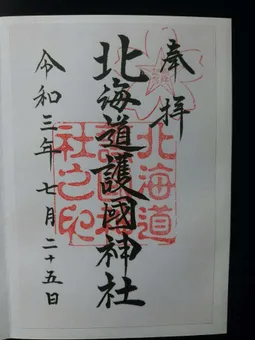 奉拝
北海道護國神社
令和三年七月二十五日
北海道
護國神
社之印